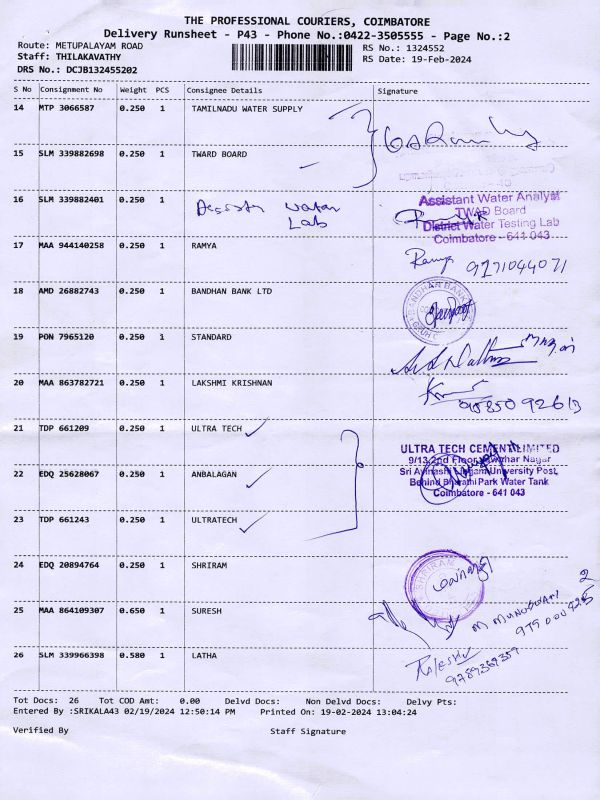 THE PROFESSIONAL COURIERS, COIMBATORE
Delivery Runsheet - P43 - Phone No.:0422-3505555 - Page No.:2
Route: METUPALAYAM ROAD RS No.: 1324552
Staff: THILAKAVATHY RS Date: 19-Feb-2024
DRS No.: DCJB132455202
S No Consignment No Weight PCS Consignee Details Signature
14 MTP 3066587 0.250 1 TAMILNADU WATER SUPPLY
15 SLM 339882698 0.250 1 TWARD BOARD
16 SLM 339882401 0.250 1 water Lab
Assistant Water Analyst
TWAD Board
District Water Testing Lab
Coimbatore - 641 043
17 MAA 944140258 0.250 1 RAMYA Ramya 9171044071
18 AMD 26882743 0.250 1 BANDHAN BANK LTD
BANDHAN BANK
19 PON 7965120 0.250 1 STANDARD
20 MAA 863782721 0.250 1 LAKSHMI KRISHNAN
21 TDP 661209 0.250 1 ULTRA TECH
ULTRA TECH CEMENT LIMITED
9/13,2nd Floor, Jawahar Nagar
22 EDQ 25628067 0.250 1 ANBALAGAN
University Post,
Behind Bharathi Park Water Tank
Coimbatore - 641 043
23 TDP 661243 0.250 1 ULTRATECH
24 EDQ 20894764 0.250 1 SHRIRAM
SHRIRAM
25 MAA 864109307 0.650 1 SURESH
M MUNUSWAMY
26 SLM 339966398 0.580 1 LATHA
9789369359
Tot Docs: 26 Tot COD Amt: 0.00 Delvd Docs: Non Delvd Docs: Delvy Pts:
Entered By :SRIKALA43 02/19/2024 12:50:14 PM Printed On: 19-02-2024 13:04:24
Verified By Staff Signature